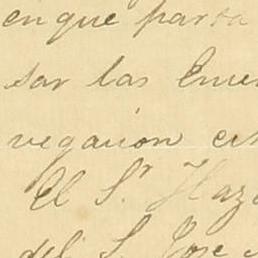 en que para
sar las Ene
vegacion en
El Sr Haz
del S. Jose